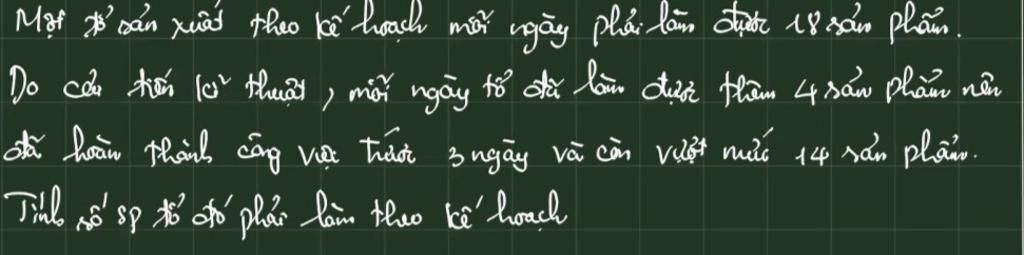 Một tổ sản xuất theo kế hoạch mỗi ngày phải làm được 18 sản phẩm.
Do cải tiến kĩ thuật, mỗi ngày tổ đã làm được thêm 4 sản phẩm nên
đã hoàn thành công việc trước 3 ngày và còn vượt mức 14 sản phẩm.
Tính số sp tổ đó phải làm theo kế hoạch